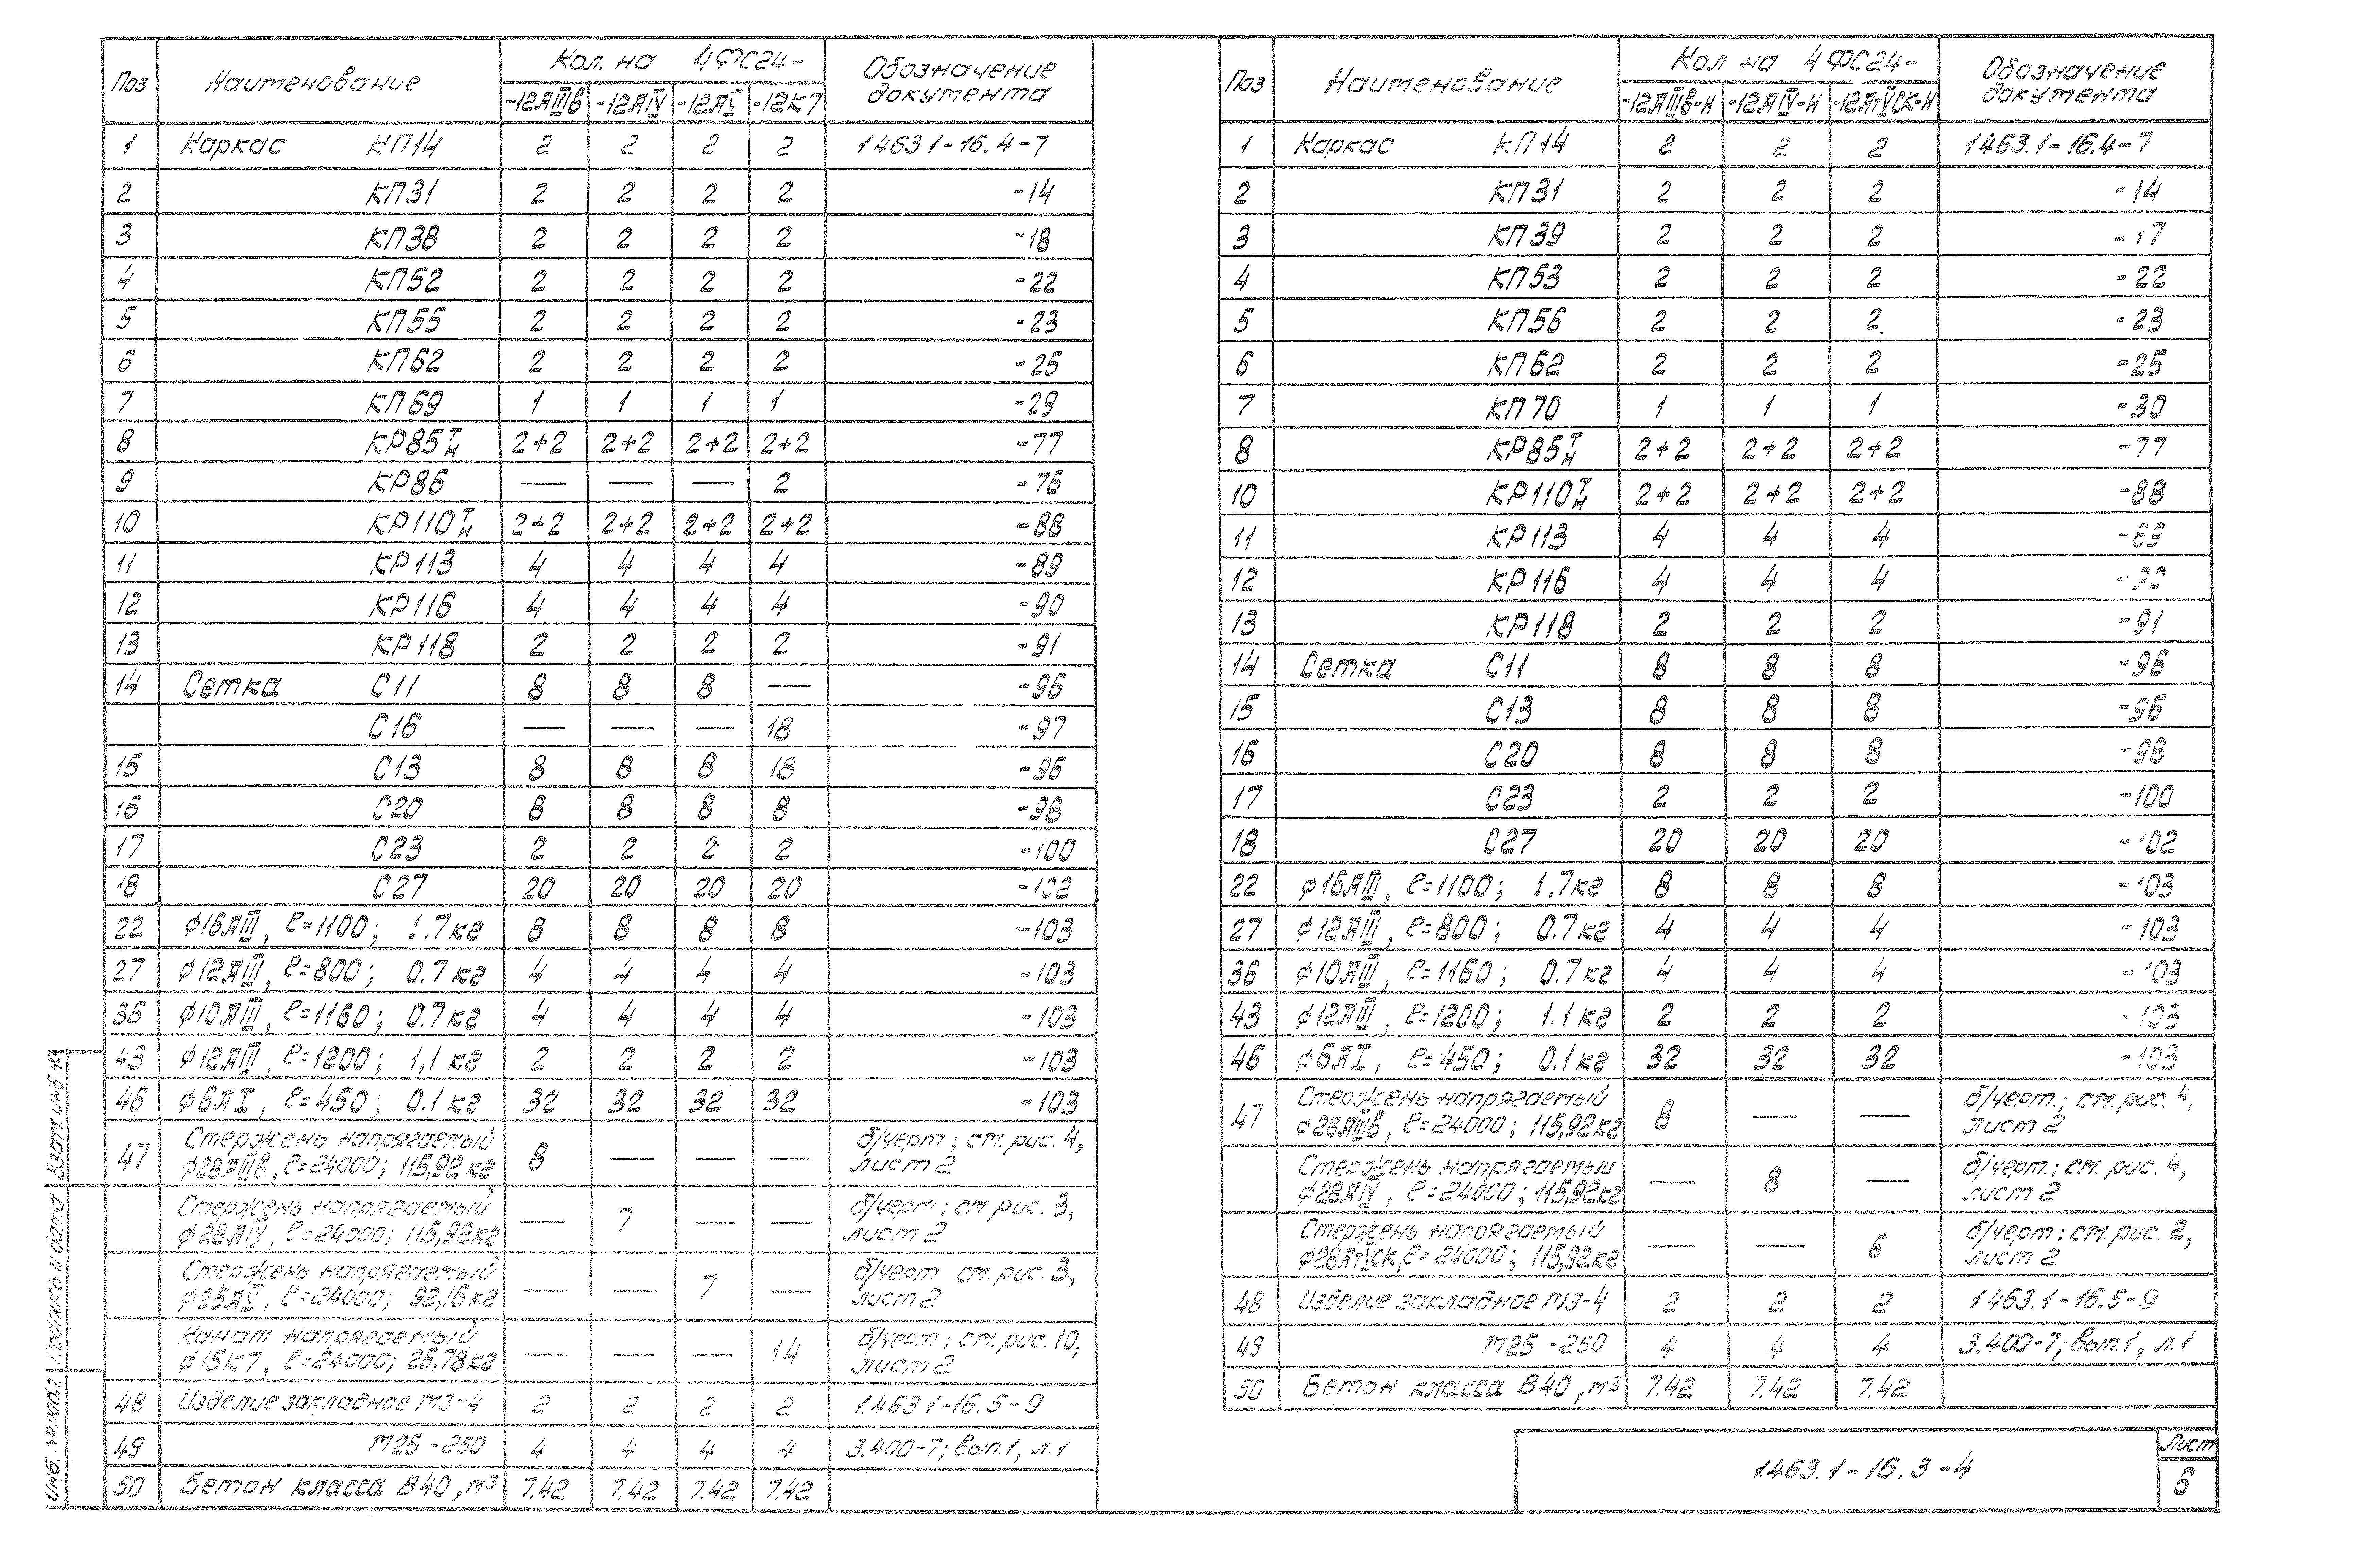 Поз Наименование Кол. на 4ФС24- Обозначение документа
-12АIIIв -12АIV -12АV -12К7
1 Каркас КП14 2 2 2 2 1463 1-16.4-7
2 КП31 2 2 2 2 -14
3 КП38 2 2 2 2 -18
4 КП52 2 2 2 2 -22
5 КП55 2 2 2 2 -23
6 КП62 2 2 2 2 -25
7 КП69 1 1 1 1 -29
8 КР85 т/н 2+2 2+2 2+2 2+2 -77
9 КР86 — — — 2 -76
10 КР110 т/н 2+2 2+2 2+2 2+2 -88
11 КР113 4 4 4 4 -89
12 КР116 4 4 4 4 -90
13 КР118 2 2 2 2 -91
14 Сетка С11 8 8 8 — -96
С16 — — — 18 -97
15 С13 8 8 8 18 -96
16 С20 8 8 8 8 -98
17 С23 2 2 2 2 -100
18 С27 20 20 20 20 -102
22 ф16АIII, ℓ=1100; 1.7кг 8 8 8 8 -103
27 ф12АIII, ℓ=800; 0.7кг 4 4 4 4 -103
36 ф10АIII, ℓ=1160; 0.7кг 4 4 4 4 -103
43 ф12АIII, ℓ=1200; 1,1кг 2 2 2 2 -103
46 ф6АI, ℓ=450; 0.1кг 32 32 32 32 -103
47 Стержень напрягаемый 8 — — — б/черт; см. рис. 4,
ф28АIIIв, ℓ=24000; 115,92кг лист 2
Стержень напрягаемый — 7 — — б/черт; см рис. 3,
ф28АIV, ℓ=24000; 115,92кг лист 2
Стержень напрягаемый — — 7 — б/черт см. рис. 3,
ф25АV, ℓ=24000; 92,16кг лист 2
Канат напрягаемый — — — 14 б/черт; см. рис. 10,
ф15К7, ℓ=24000; 26,78кг лист 2
48 Изделие закладное М3-4 2 2 2 2 1.463 1-16.5-9
49 М25-250 4 4 4 4 3.400-7; вып.1, л.1
50 Бетон класса В40, м3 7.42 7.42 7.42 7.42
Поз Наименование Кол на 4ФС24- Обозначение документа
-12АIIIв-Н -12АIV-Н -12АтVСК-Н
1 Каркас КП14 2 2 2 1463.1-16.4-7
2 КП31 2 2 2 -14
3 КП39 2 2 2 -17
4 КП53 2 2 2 -22
5 КП56 2 2 2 -23
6 КП62 2 2 2 -25
7 КП70 1 1 1 -30
8 КР85 т/н 2+2 2+2 2+2 -77
10 КР110 т/н 2+2 2+2 2+2 -88
11 КР113 4 4 4
12 КР116 4 4 4
13 КР118 2 2 2 -91
14 Сетка С11 8 8 8 -96
15 С13 8 8 8 -96
16 С20 8 8 8
17 С23 2 2 2 -100
18 С27 20 20 20 -102
22 ф16АIII, ℓ=1100; 1.7кг 8 8 8 -103
27 ф12АIII, ℓ=800; 0.7кг 4 4 4 -103
36 ф10АIII, ℓ=1160; 0.7кг 4 4 4 -103
43 ф12АIII, ℓ=1200; 1.1кг 2 2 2 -103
46 ф6АI, ℓ=450; 0.1кг 32 32 32 -103
47 Стержень напрягаемый 8 — — б/черт.; см. рис. 4,
ф28АIIIв, ℓ=24000; 115,92кг лист 2
Стержень напрягаемый — 8 — б/черт.; см. рис. 4,
ф28АIV, ℓ=24000; 115,92кг лист 2
Стержень напрягаемый — — 6 б/черт; см. рис. 2,
ф28АтVСК, ℓ=24000; 115,92кг лист 2
48 Изделие закладное М3-4 2 2 2 1463.1-16.5-9
49 М25-250 4 4 4 3.400-7; вып.1, л.1
50 Бетон класса В40, м3 7.42 7.42 7.42
1.463.1-16.3-4
Лист
6
Взам. инб. №
Подпись и дата
Инб. № подл.